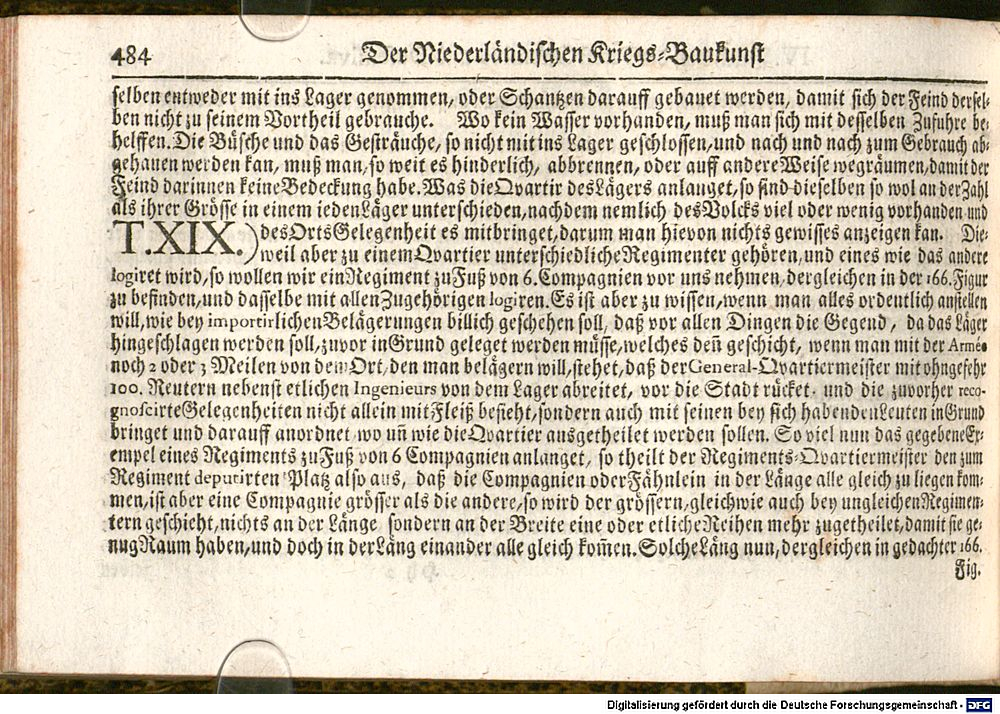 484 Der Niederländischen Kriegs-Baukunst
selben entweder mit ins Lager genommen, oder Schantzen darauff gebauet werden, damit sich der Feind dersel-
ben nicht zu seinem Vortheil gebrauche. Wo kein Wasser vorhanden, muß man sich mit desselben Zufuhre be-
helffen. Die Büsche und das Gesträuche, so nicht mit ins Lager geschlossen, und nach und nach zum Gebrauch ab-
gehauen werden kan, muß man, so weit es hinderlich, abbrennen, oder auff andere Weise wegräumen, damit der
Feind darinnen keine Bedeckung habe. Was die Qvartir des Lägers anlanget, so sind dieselben so wol an der Zahl
als ihrer Grösse in einem ieden Läger unterschieden, nachdem nemlich des Volcks viel oder wenig vorhanden und
T. XIX.) des Orts Gelegenheit es mitbringet, darum man hievon nichts gewisses anzeigen kan. Die-
weil aber zu einem Qvartier unterschiedliche Regimenter gehören, und eines wie das andere
logiret wird, so wollen wir ein Regiment zu Fuß von 6. Compagnien vor uns nehmen, dergleichen in der 166. Figur
zu befinden, und dasselbe mit allen Zugehörigen logiren. Es ist aber zu wissen, wenn man alles ordentlich anstellen
will, wie bey importirlichen Belägerungen billich geschehen soll, daß vor allen Dingen die Gegend, da das Läger
hingeschlagen werden soll, zuvor in Grund geleget werden müsse, welches deñ geschicht, wenn man mit der Armée
noch 2 oder 3 Meilen von dem Ort, den man belägern will, stehet, daß der General-Qvartiermeister mit ohngefehr
100. Reutern nebenst etlichen Ingenieurs von dem Lager abreitet, vor die Stadt rücket, und die zuvorher reco-
gnoscirte Gelegenheiten nicht allein mit Fleiß besieht, sondern auch mit seinen bey sich habenden Leuten in Grund
bringet und darauff anordnet, wo uñ wie die Qvartier ausgetheilet werden sollen. So viel nun das gegebene Ex-
empel eines Regiments zu Fuß von 6 Compagnien anlanget, so theilt der Regiments-Qvartiermeister den zum
Regiment deputirten Platz also aus, daß die Compagnien oder Fähnlein in der Länge alle gleich zu liegen kom-
men, ist aber eine Compagnie grösser als die andere, so wird der grössern, gleichwie auch bey ungleichen Regimen-
tern geschieht, nichts an der Länge sondern an der Breite eine oder etliche Reihen mehr zugetheilet, damit sie ge-
nug Raum haben, und doch in der Läng einander alle gleich kom̃en. Solche Läng nun, dergleichen in gedachter 166.
Fig.
Digitalisierung gefördert durch die Deutsche Forschungsgemeinschaft - DFG